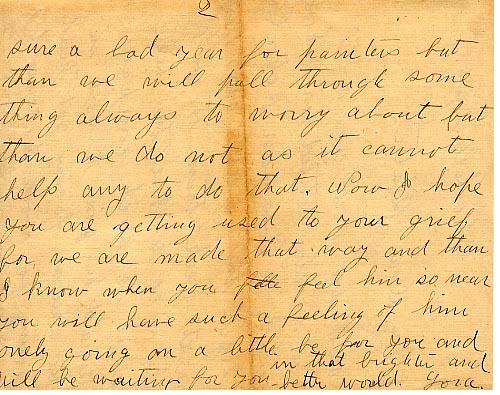 2
sure a bad year for painters but
than we will pull through some
thing always to worry about but
than we do not as it cannot
help any to do that. Now I hope
you are getting used to your grief
for we are made that way and than
I know when you feel him so near
you will have such a feeling of him
only going on a little be for you and
will be waiting for you in that brighter and
better world. You